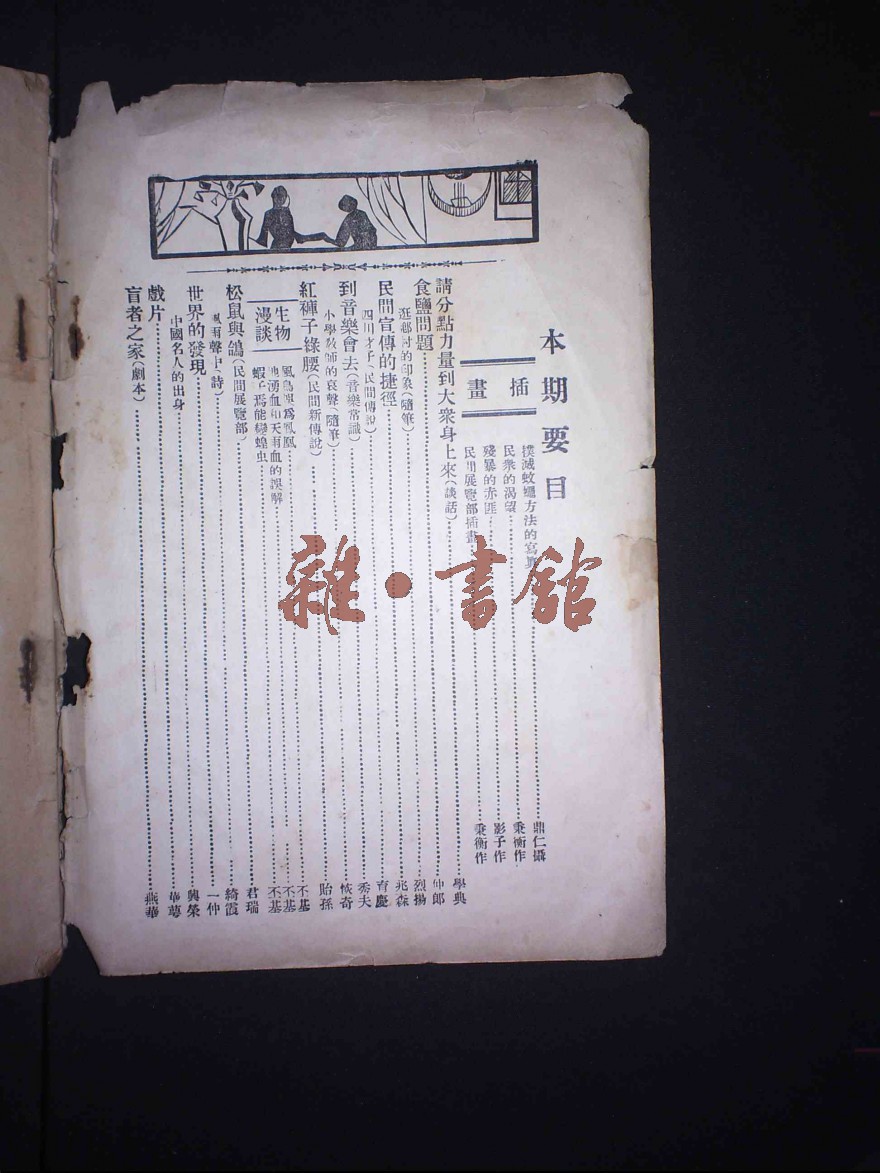 本期要目
插畫
撲滅蚊蠅方法的寫真 鼎仁攝
民衆的渴望 秉衡作
殘暴的赤匪 影子作
民間展覽部插畫 秉衡作
請分點力量到大衆身上來(談話) 學典
食鹽問題 仲郎
逛鄉村的印象(隨筆) 烈揚
民間宣傳的捷徑 兆森
四川才子(民間傳說) 育慶
到音樂會去(音樂常識) 秀夫
小學教師的哀聲(隨筆) 恢奇
紅褲子綠腰(民間新傳說) 貽孫
生物漫談
鳳鳥 爲鳳凰 不基
地湧血和天雨血的誤解 不基
蝦子焉能變蝗虫 不基
松鼠與鴿(民間展覽部) 君瑞
風雨聲中(詩) 綺霞
世界的發現 一仲
中國名人的出身 興榮
戲片 華萼
盲者之家(劇本) 燕華
雜·書館